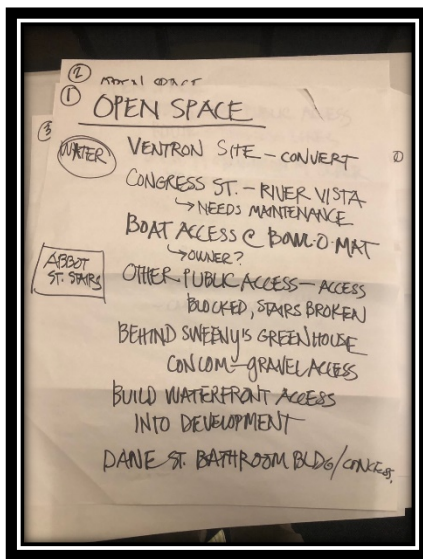 ②
① OPEN SPACE
③
WATER
VENTRON SITE – CONVERT
CONGRESS ST. – RIVER VISTA
↳ NEEDS MAINTENANCE
BOAT ACCESS @ BOWL-O-MAT
↳ OWNER?
ABBOT
ST. STAIRS
OTHER PUBLIC ACCESS – ACCESS
BLOCKED, STAIRS BROKEN
BEHIND SWEENY'S GREENHOUSE
CONCOM – GRAVEL ACCESS
BUILD WATERFRONT ACCESS
INTO DEVELOPMENT
DANE ST. BATHROOM BLDG/CONCESS.